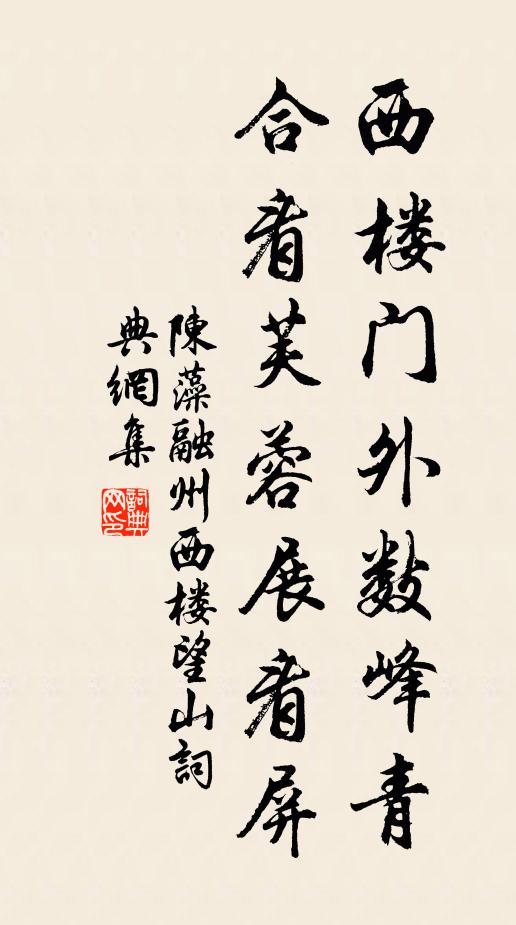 西楼门外数峰青
合着芙蓉展着屏
陳藻融州西楼望山詞
典網集
詞典网印